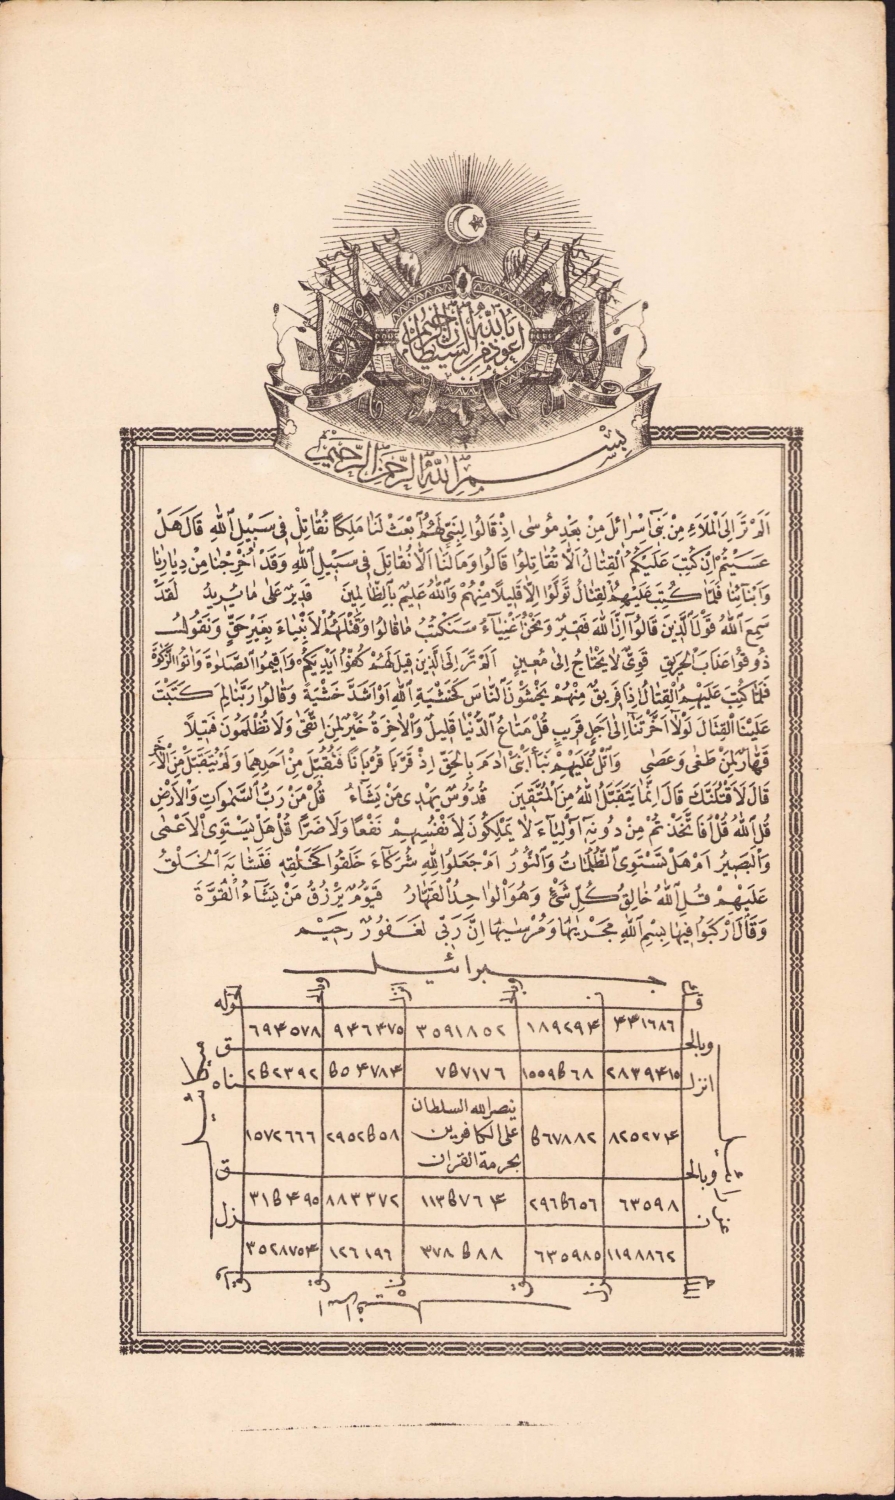 اعوذ بالله من الشيطان الرجيم
بسم الله الرحمن الرحيم
اَلَمْ تَرَ اِلَى الْمَلَاءِ مِنْ بَنِى اِسْرَائِلَ مِنْ بَعْدِ مُوسٰى اِذْ قَالُوا لِنَبِىٍّ لَهُمُ ابْعَثْ لَنَا مَلِكًا نُقَاتِلْ فِى سَبِيْلِ اللّٰهِ قَالَ هَلْ
عَسَيْتُمْ اِنْ كُتِبَ عَلَيْكُمُ الْقِتَالُ اَلَّا تُقَاتِلُوا قَالُوا وَمَا لَنَا اَلَّا نُقَاتِلَ فِى سَبِيْلِ اللّٰهِ وَقَدْ اُخْرِجْنَا مِنْ دِيَارِنَا
وَاَبْنَائِنَا فَلَمَّا كُتِبَ عَلَيْهِمُ الْقِتَالُ تَوَلَّوْا اِلَّا قَلِيلًا مِنْهُمْ وَاللّٰهُ عَلِيمٌ بِالظَّالِمِينَ قَدِيرٌ عَلٰى مَا يُرِيدُ لَقَدْ
سَمِعَ اللّٰهُ قَوْلَ الَّذِينَ قَالُوا اِنَّ اللّٰهَ فَقِيرٌ وَنَحْنُ اَغْنِيَاءُ سَنَكْتُبُ مَا قَالُوا وَقَتْلَهُمُ الْاَنْبِيَاءَ بِغَيْرِ حَقٍّ وَنَقُولُ
ذُوقُوا عَذَابَ الْحَرِيقِ قَوِىٌّ لَا يَحْتَاجُ اِلٰى مُعِينٍ اَلَمْ تَرَ اِلَى الَّذِينَ قِيلَ لَهُمْ كُفُّوا اَيْدِيَكُمْ وَاَقِيمُوا الصَّلٰوةَ وَاٰتُوا الزَّكٰوةَ
فَلَمَّا كُتِبَ عَلَيْهِمُ الْقِتَالُ اِذَا فَرِيقٌ مِنْهُمْ يَخْشَوْنَ النَّاسَ كَخَشْيَةِ اللّٰهِ اَوْ اَشَدَّ خَشْيَةً وَقَالُوا رَبَّنَا لِمَ كَتَبْتَ
عَلَيْنَا الْقِتَالَ لَوْلَا اَخَّرْتَنَا اِلٰى اَجَلٍ قَرِيبٍ قُلْ مَتَاعُ الدُّنْيَا قَلِيلٌ وَالْاٰخِرَةُ خَيْرٌ لِمَنِ اتَّقٰى وَلَا تُظْلَمُونَ فَتِيلًا
قَهَّارٌ لِمَنْ طَغٰى وَعَصٰى وَاتْلُ عَلَيْهِمْ نَبَاَ ابْنَىْ اٰدَمَ بِالْحَقِّ اِذْ قَرَّبَا قُرْبَانًا فَتُقُبِّلَ مِنْ اَحَدِهِمَا وَلَمْ يُتَقَبَّلْ مِنَ الْاٰخَرِ
قَالَ لَاَقْتُلَنَّكَ قَالَ اِنَّمَا يَتَقَبَّلُ اللّٰهُ مِنَ الْمُتَّقِينَ قُدُّوسٌ يَهْدِى مَنْ يَشَاءُ قُلْ مَنْ رَبُّ السَّمٰوَاتِ وَالْاَرْضِ
قُلِ اللّٰهُ قُلْ اَفَاتَّخَذْتُمْ مِنْ دُونِهٖ اَوْلِيَاءَ لَا يَمْلِكُونَ لِاَنْفُسِهِمْ نَفْعًا وَلَا ضَرًّا قُلْ هَلْ يَسْتَوِى الْاَعْمٰى
وَالْبَصِيرُ اَمْ هَلْ تَسْتَوِى الظُّلُمَاتُ وَالنُّورُ اَمْ جَعَلُوا لِلّٰهِ شُرَكَاءَ خَلَقُوا كَخَلْقِهٖ فَتَشَابَهَ الْخَلْقُ
عَلَيْهِمْ قُلِ اللّٰهُ خَالِقُ كُلِّ شَىْءٍ وَهُوَ الْوَاحِدُ الْقَهَّارُ قَيُّومٌ يَرْزُقُ مَنْ يَشَاءُ الْقُوَّةَ
وَقَالَ ارْكَبُوا فِيهَا بِسْمِ اللّٰهِ مَجْرٰيهَا وَمُرْسٰيهَا اِنَّ رَبِّى لَغَفُورٌ رَحِيمٌ
جبرائيل
قوله
۴۴۱٦٨٦ ١٨٩٢٩۴ ٣٥٩١٨٥٢ ٩۴٦۴٧٥ ٦٩۴٥٧٨
وبالحق
انزلناه
نصر الله السلطان
على الكافرين
بحرمة القران
١٥٧٢٦٦٦
وبالحق
نزل
٦٣٥٩٨ ٨٨٣٣٧٢
١١٩٨٨٦٢ ٦٣٥٩٨٥ ١٢٦١٩٦ ٣٥٢٨٧٥۴
ميكائيل